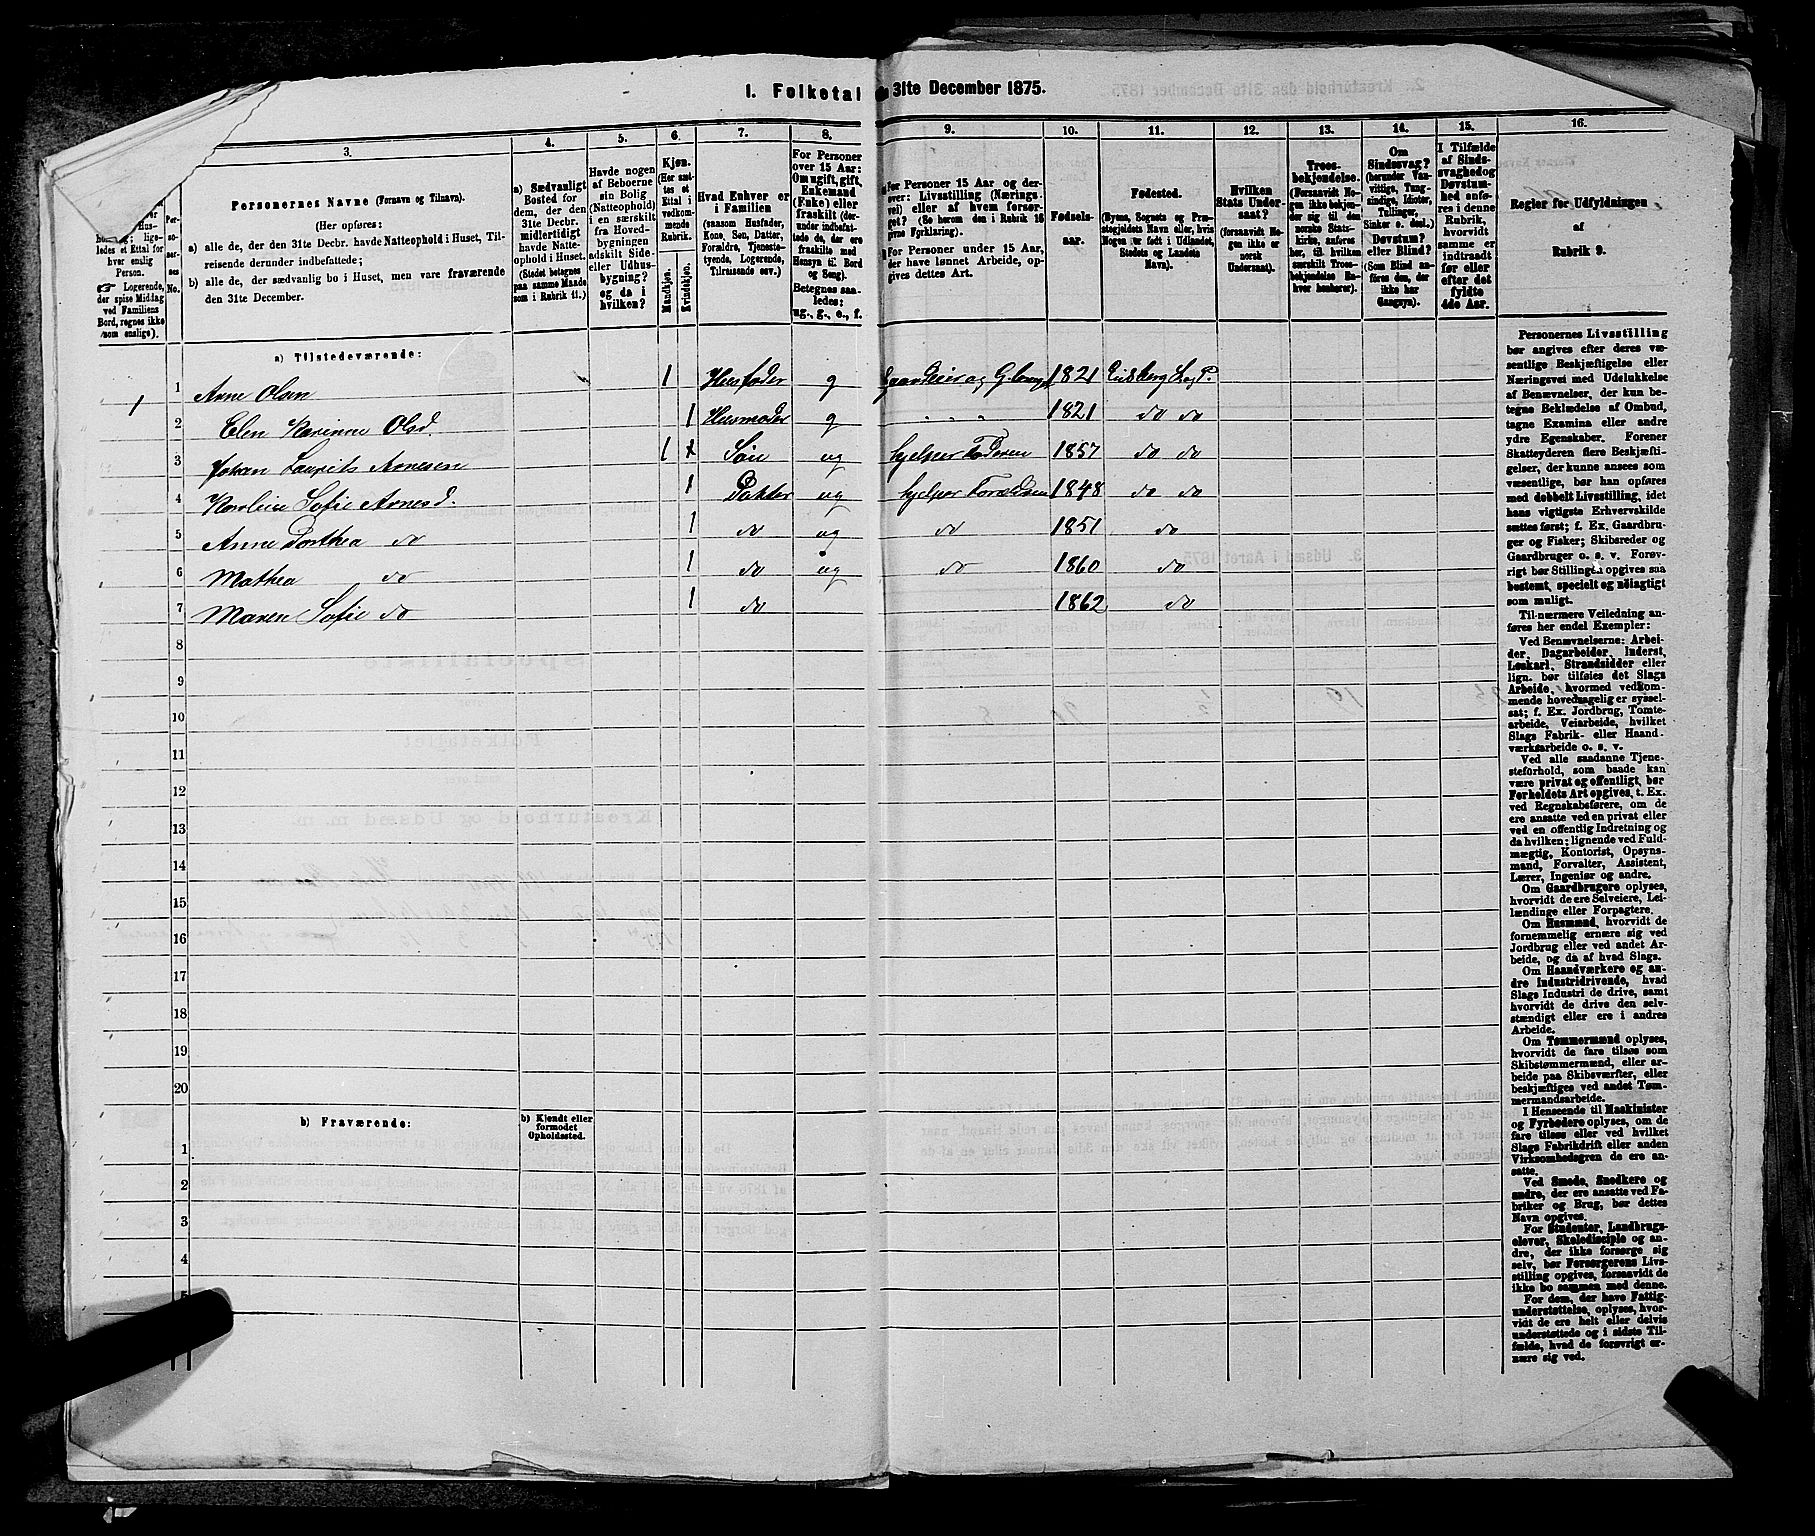 1. Folketal 31te December 1875.
3. 4. 5. 6. 7. 8. 9. 10. 11. 12. 13. 14. 15. 16.
Personernes Navne (Fornavn og Tilnavn).
(Her opføres:
a) alle de, der den 31te Decbr. havde Natteophold i Huset, Til-
reisende derunder indbefattede;
b) alle de, der sædvanlig bo i Huset, men vare fraværende
den 31te December.
ligele-
ledes et Ettal
for hver enslig
Person.
Logerende,
der spise Middag
ved Familiens
Bord, regnes ikke
som enslige).
Per-
so-
ner-
nes
No.
a) Sædvanligt
Bosted for
dem, der den
31te Decbr.
midlertidigt
havde Natte-
ophold i Huset.
(Stedet betegnes
paa samme Maade
som i Rubrik 11.)
Havde nogen
af Beboerne
sin Bolig
(Natteophold)
i en særskilt
fra Hoved-
bygningen
adskilt Side-
eller Udhus-
bygning?
og da i
hvilken?
Kjøn.
(Her sæt-
tes et
Ettal i
vedkom-
mende
Rubrik.
Mandkjøn.
Kvindekjøn.
Hvad Enhver er
i Familien
(saasom Husfader,
Kone, Søn, Datter,
Forældre, Tjeneste-
tyende, Logerende,
Tilreisende osv.)
For Personer
over 15 Aar:
Om ugift, gift,
Enkemand
(Enke) eller
fraskilt (der-
under indbefat-
tede de, der ere
fraskilte med
Hensyn til Bord
og Seng).
Betegnes saa-
ledes:
ug., g., e., f.
For Personer 15 Aar og der-
over: Livsstilling (Nærings-
vei) eller af hvem forsør-
get? (Se herom den i Rubrik 16
givne Forklaring).
For Personer under 15 Aar,
der have lønnet Arbeide, op-
gives dettes Art.
Fødsels-
aar.
Fødested.
(Byens, Sognets og Præ-
stegjeldets Navn eller, hvis
Nogen er født i Udlandet,
Stedets og Landets
Navn).
Hvilken
Stats Under-
saat?
(forsaavidt No-
gen ikke er
norsk
Undersaat).
Troes-
bekjendelse.
(Forsaavidt No-
gen ikke bekjen-
der sig til den
norske Stats-
kirke, anføres
her, til hvilken
særskilt Troes-
bekjendelse En-
hver henhører).
Om
Sindssvag?
(herunder Van-
vittige, Tung-
sindige, Idioter,
Tullinger,
Sinker o. desl.)
Døvstum?
eller Blind?
(Som Blind an-
føres den, der
ikke har
Gangsyn).
I Tilfælde
af Sinds-
svaghed og
Døvstum-
hed anfø-
res i denne
Rubrik,
hvorvidt
samme er
indtraadt
før eller
efter det
fyldte
4de Aar.
Regler for Udfyldningen
af
Rubrik 9.
a) Tilstedeværende:
1 1 Arne Olsen 1 Husfader g Gaardeier og 1821 Eidsberg S og P.
2 Elen Karinne Olsd. 1 Husmoder g " " " 1821 do do
3 Johan Laurits Arnesen 1 Søn ug hjelper Faderen 1857 do do
4 Karoline Sofie Arnesd. 1 Datter ug hjelper Forældrene 1848 do do
5 Anne Dorthea do 1 do ug do 1851 do
6 Mathea do 1 do ug do 1860 do
7 Maren Sofie do 1 do 1862 do
8
9
10
11
12
13
14
15
16
17
18
19
20
b) Fraværende:
b) Kjendt eller
formodet
Opholdssted.
1
2
3
4
5
Personernes Livsstilling
bør angives efter deres væ-
sentlige Beskjæftigelse eller
Næringsvei med Udelukkelse
af Benævnelser, der kun be-
tegne Beklædelse af Ombud,
tagne Examina eller andre
ydre Egenskaber. Forener
Skatteyderen flere Beskjæfti-
gelser, der kunne ansees som
væsentlige, bør han opføres
med dobbelt Livsstilling, idet
hans vigtigste Erhvervskilde
sættes først; f. Ex. Gaardbru-
ger og Fisker; Skibsreder og
Gaardbruger o. s. v. Forøv-
rigt bør Stillingen opgives saa
bestemt, specielt og nøiagtigt
som muligt.
Til nærmere Veiledning an-
føres her endel Exempler:
Ved Benævnelserne: Arbei-
der, Dagarbeider, Inderst,
Løskarl, Strandsidder eller
lign. bør tilføies det Slags
Arbeide, hvormed vedkom-
mende hovedsagelig er syssel-
sat; f. Ex. Jordbrug, Tomte-
arbeide, Veiarbeide, hvilket
Slags Fabrik- eller Haand-
værksarbeide o. s. v.
Ved alle saadanne Tjene-
steforhold, som baade kan
være privat og offentligt, bør
Forholdets Art opgives, t. Ex.
ved Regnskabsførere, om de
ere ansatte ved en privat eller
ved en offentlig Indretning og
da hvilken; lignende ved Fuld-
mægtig, Kontorist, Opsyns-
mand, Forvalter, Assistent,
Lærer, Ingeniør og andre.
Om Gaardbrugere oplyses,
hvorvidt de ere Selveiere, Lei-
lændinge eller Forpagtere.
Om Husmænd, hvorvidt de
fornemmelig ernære sig ved
Jordbrug eller ved andet Ar-
beide, og da af hvad Slags.
Om Haandværkere og an-
dre Industridrivende, hvad
Slags Industri de drive, samt
hvorvidt de drive den selv-
stændigt eller ere i andres
Arbeide.
Om Tømmermænd oplyses,
hvorvidt de fare tilsøs som
Skibstømmermænd, eller ar-
beide paa Skibsværfter, eller
beskjæftiges ved andet Tøm-
mermandsarbeide.
I Henseende til Maskinister
og Fyrbødere oplyses, om de
fare tilsøs eller ved hvilket
Slags Fabrikdrift eller anden
Virksomhedsgren de ere an-
satte.
Ved Smede, Snedkere og
andre, der ere ansatte ved Fa-
briker og Brug, bør dettes
Navn opgives.
For Studenter, Landbrugs-
elever, Skoledisciple og an-
dre, der ikke forsørge sig
selv, bør Forsørgerens Livs-
stilling opgives, forsaavidt de
ikke bo sammen med denne.
For dem, der have Fattig-
understøttelse, oplyses, hvor-
vidt de ere helt eller delvis
understøttede og i sidste Til-
fælde, hvad de forøvrigt er-
nære sig ved.